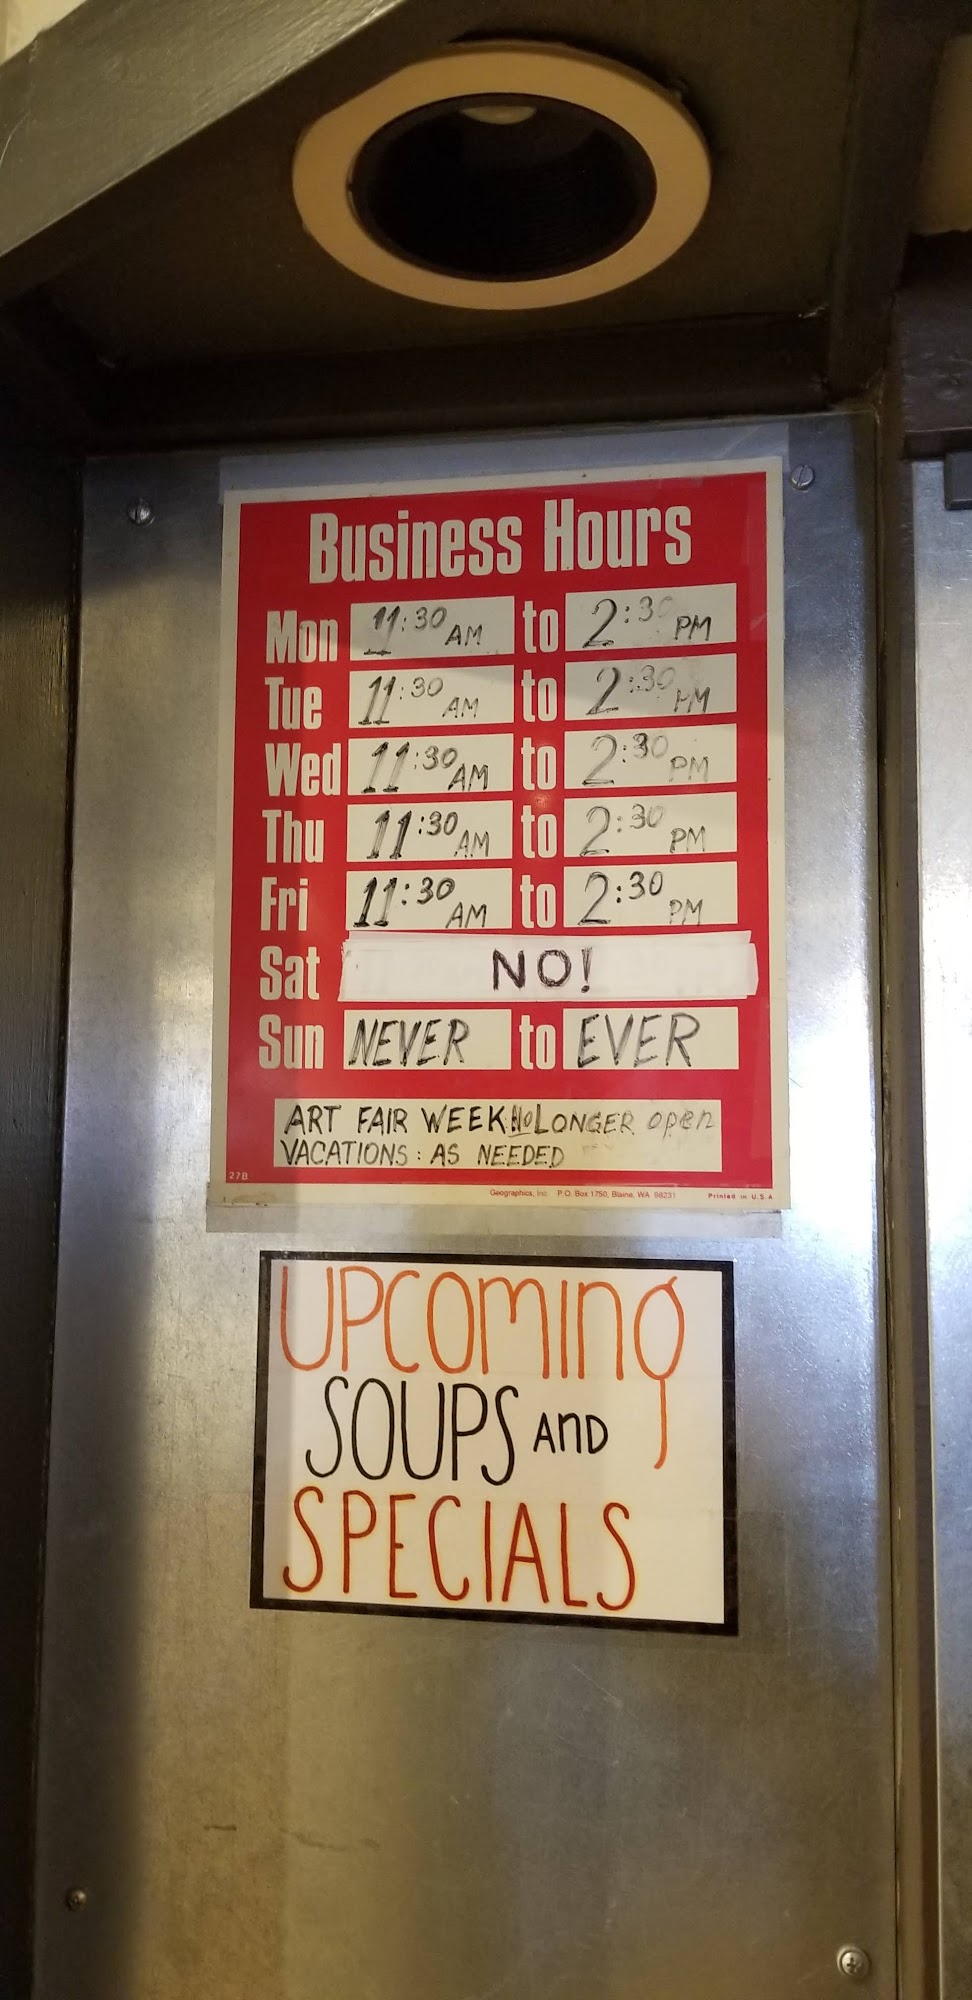 Business Hours
Mon 11:30 AM to 2:30 PM
Tue 11:30 AM to 2:30 PM
Wed 11:30 AM to 2:30 PM
Thu 11:30 AM to 2:30 PM
Fri 11:30 AM to 2:30 PM
Sat NO!
Sun NEVER to EVER
ART FAIR WEEK: No LONGER open
VACATIONS: AS NEEDED
27B
Geographics, Inc. P.O. Box 1750, Blaine, WA 98231 Printed in U.S.A
UPCOMING
SOUPS AND
SPECIALS